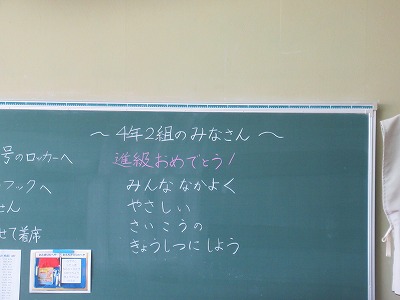 ～4年2組のみなさん～
進級おめでとう！
みんな なかよく
やさしい
さいこうの
きょうしつにしよう
号のロッカーへ
フックへ
さん
せて着席